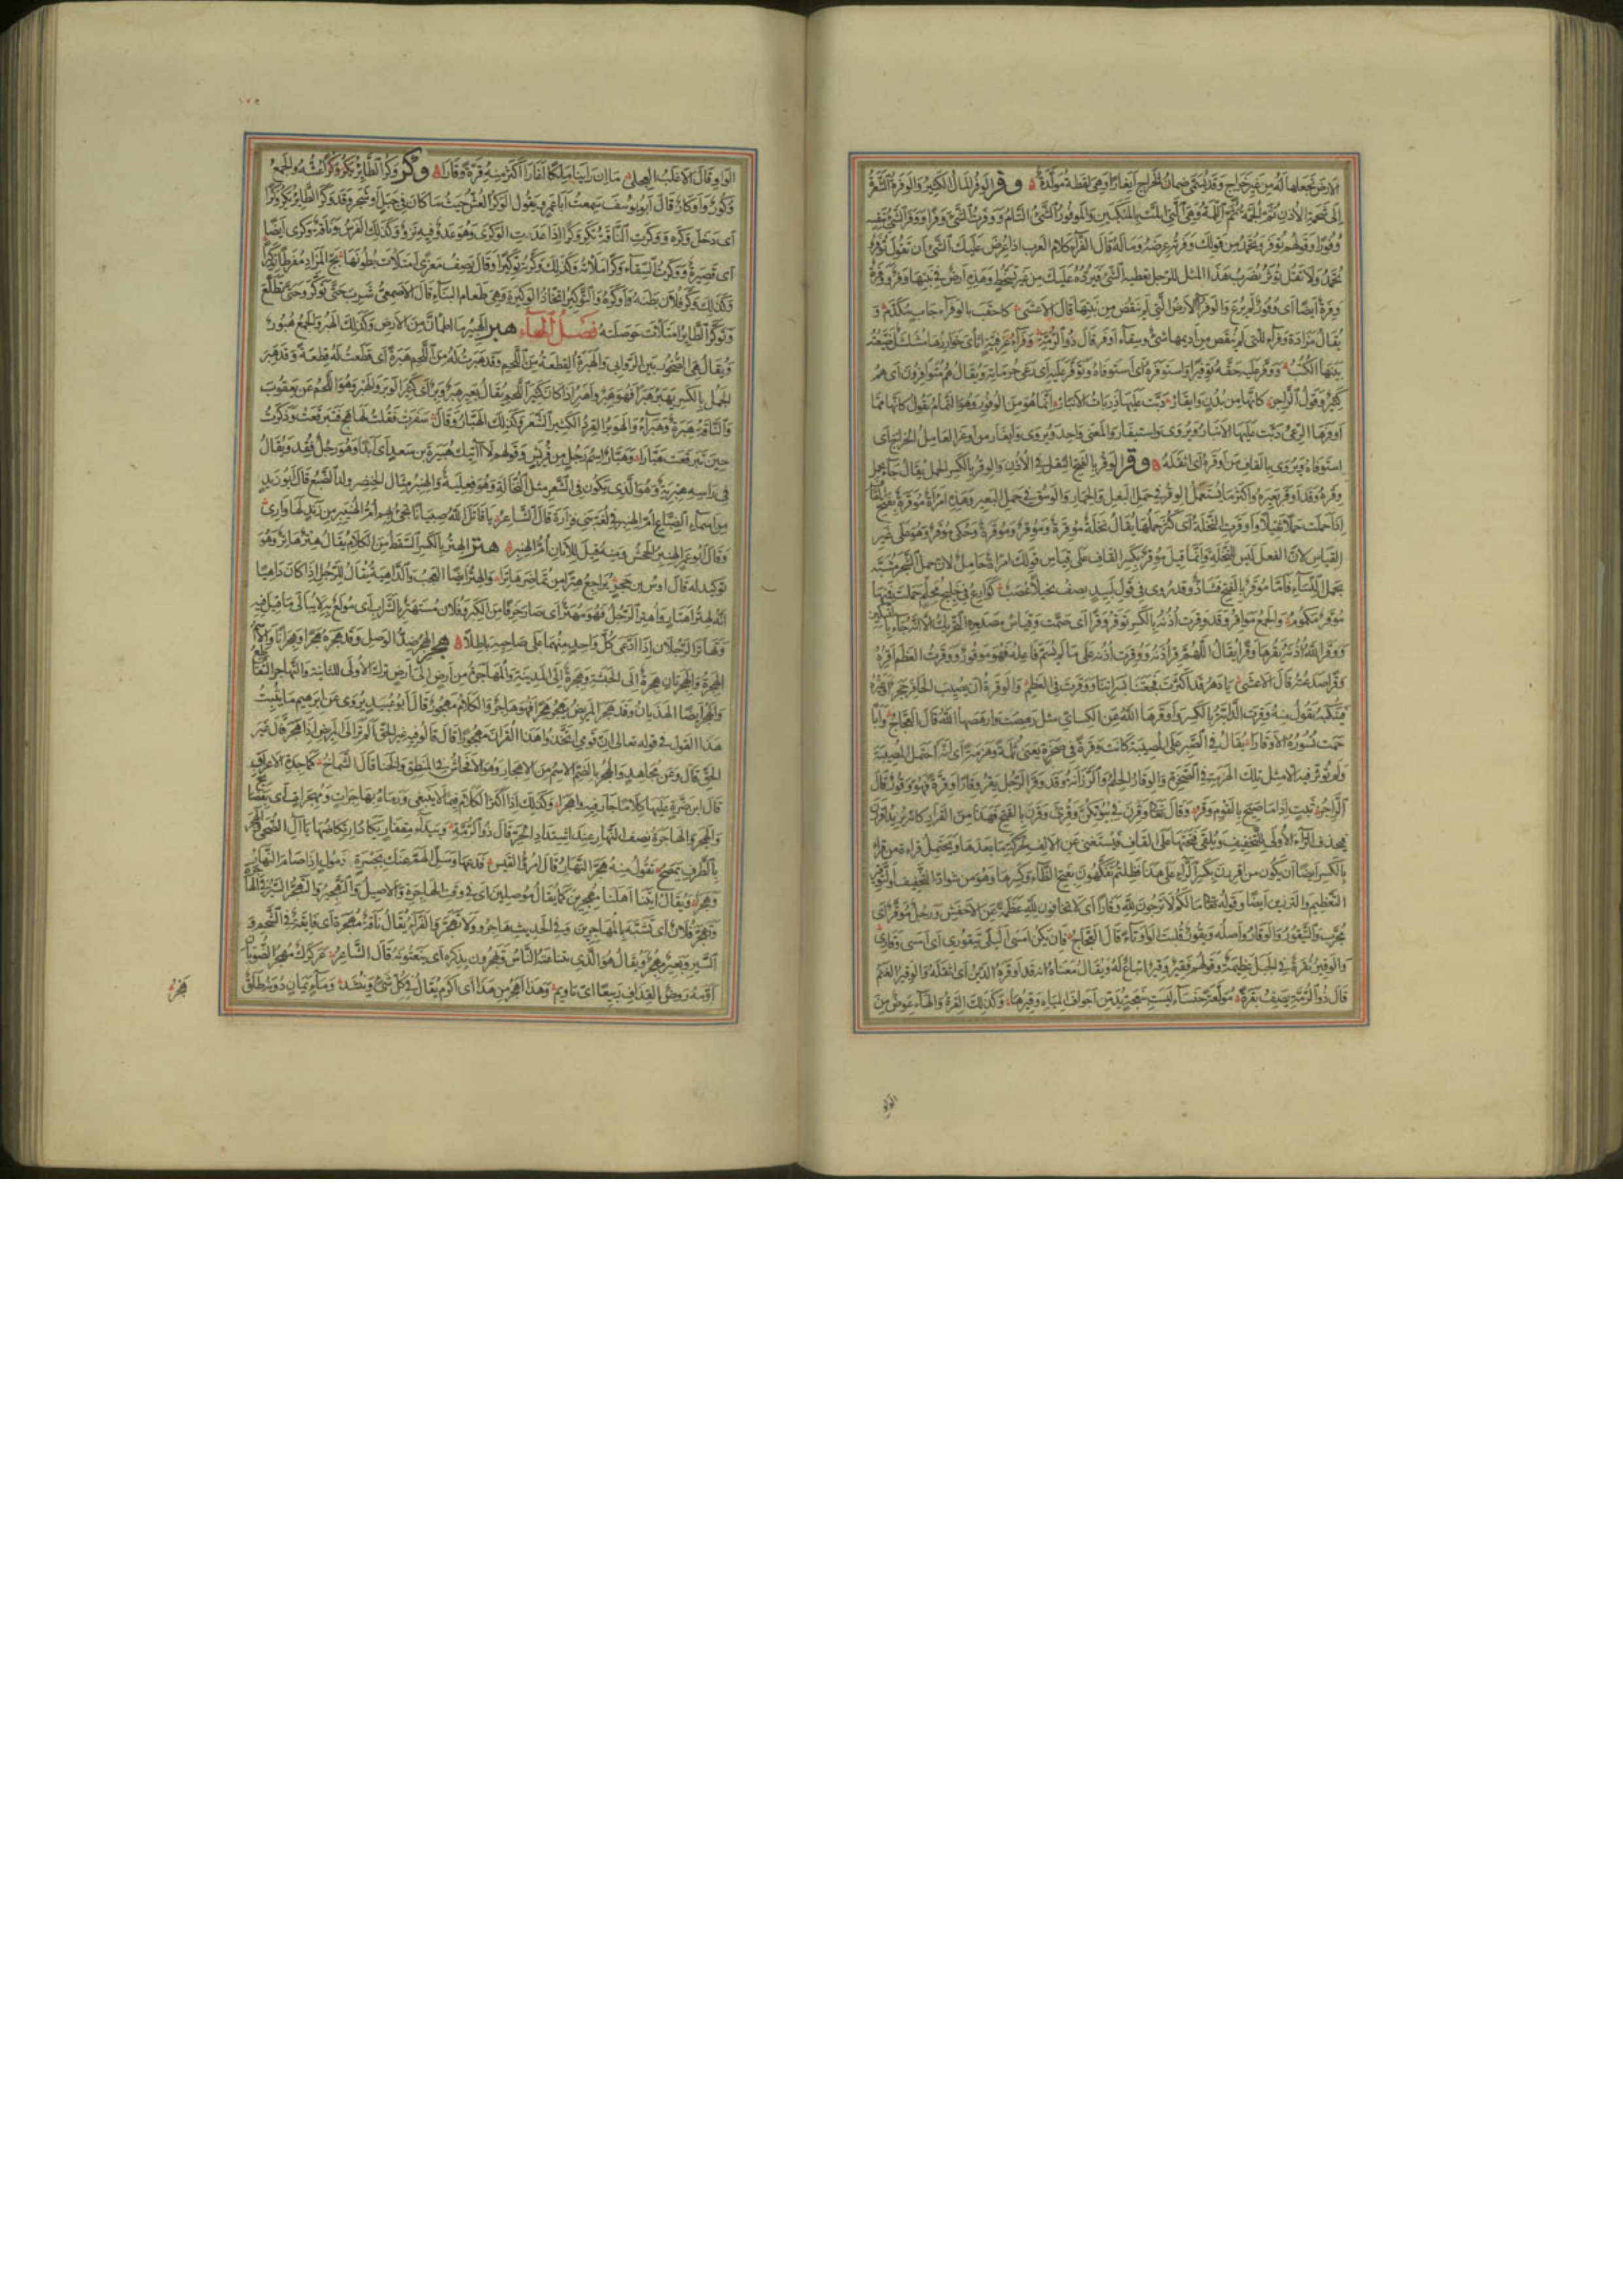 الارض تجعلها له من غير خراج وقد يسمى ضمان الخراج ايغارا وهى لفظة مولدة وفر الوفر المال الكثير والوفرة الشعرة
الى شحمة الاذن ثم الجمة ثم اللمة وهى التى المت بالمنكبين والموفور الشئ التام ووفرت الشئ وفرا ووفر الشئ بنفسه
وفورا وقولهم توفر وتحمد من قولك وفرته عرضه وماله قال الفراء كلام العرب اذا عرض عليك الشئ ان تقول توفر
وتحمد ولا تقل توثر يضرب هذا المثل للرجل تعطيه الشئ فيرده عليك من غير تسخط وهذه ارض فى نبتها وفر ووفرة
وفرة ايضا اى وفور لم يرع والوفراء الارض التى لم ينقص من نبتها قال الاعشى
يقال مزادة وفراء للتى لم ينقص من اديمها شئ وسقاء اوفر قال ذو الرمة وفراء غرفية اثأى خوارزها مشلشل ضيعته
بينها الكتب ووفر عليه حقه توفيرا واستوفره اى استوفاه وتوفر عليه اى رعى حرماته ويقال هم متوافرون اى هم
كثير وقول الراجز كانها من بدن وايفار دبت عليها ذربات الانبار انما هو من الوفور وهو التمام يقول كانها مما
اوفرها الرعى دبت عليها الانبار ويروى واستيفار والمعنى واحد ويروى وايغار من اوغر العامل الخراج اى
استوفاه ويروى بالقاف من اوقره اى اثقله وقر الوقر بالفتح الثقل فى الاذن والوقر بالكسر الحمل يقال جاء يحمل
وقره وقد اوقر بعيره واكثر ما يستعمل الوقر فى حمل البغل والحمار والوسق فى حمل البعير وهذه امرأة موقرة بفتح القاف
اذا حملت حملا ثقيلا واوقرت النخلة اى كثر حملها يقال نخلة موقرة وموقر وموقرة وحكى موقر وهو على غير
القياس لان الفعل ليس للنخلة وانما قيل موقر بكسر القاف على قياس قولك امرأة حامل لان حمل الشجر مشبه
بحمل النساء فاما موقر بالفتح فشاذ وقد روى فى قول لبيد يصف نخيلا عصب كوارع فى خليج محلم حملت فمنها
موقر مكموم والجمع مواقر وقد وقرت اذنه بالكسر توقر وقرا اى صمت وقياس مصدره التحريك الا انه جاء بالتسكين
ووقر الله اذنه يقرها وقرا يقال اللهم قر اذنه ووقرت اذنه على ما لم يسم فاعله فهو موقور ووقرت العظم اقره
وقرا صدعته قال الاعشى يا دهر قد اكثرت فجعتنا بسراتنا ووقرت فى العظم والوقرة ان يصيب الحافر حجر او غيره
فينكبه تقول منه وقرت الدابة بالكسر واوقرها الله عن الكسائى مثل رهصت وارهصها الله قال العجاج وأبا
حمت نسوره الاوقارا يقال فى الصبر على المصيبة كانت وقرة فى صخرة يعنى ثلمة وهزمة اى انه احتمل المصيبة
ولم تؤثر فيه الا مثل تلك الهزمة فى الصخرة والوقار الحلم والرزانة وقد وقر الرجل يقر وقارا وقرة فهو وقور قال
الراجز ثبت اذا ما صيح بالقوم وقر وقال تعالى وقرن فى بيوتكن وقرئ وقرن بالفتح فهذا من القرار كانه يريد اقررن
بحذف الراء الاولى للتخفيف ويلقى فتحتها على القاف فيستغنى عن الالف بحركة ما بعدها ويحتمل قراءة من قرأ
بالكسر ايضا ان يكون من اقررن بكسر الراء على هذا فظلتم تفكهون بفتح الظاء وكسرها وهو من شواذ التخفيف والتوقير
التعظيم والترزين ايضا وقوله تعالى ما لكم لا ترجون لله وقارا اى لا تخافون لله عظمة عن الاخفش ورجل موقر اى
مجرب والتيقور الوقار واصله ويقور قلبت الواو تاء قال العجاج فان يكن امسى البلى تيقورى اى امسى وقارى
والوقير نقرة فى الجبل عظيمة وقولهم فقير وقير اتباع له ويقال معناه انه قد اوقره الدين اى اثقله والوقير الغنم
قال ذو الرمة يصف بقرة مولعة خنساء ليست بنعجة يدمن اجواف المياه وقيرها وكذلك القرة والهاء عوض من
الواو
الواو وقال الاغلب العجلى ما ان رأينا ملكا اغارا اكثر منه قرة وقارا وكر وكر الطائر عشه والجمع
وكور واوكار قال ابو يوسف سمعت ابا عمرو يقول الوكر العش حيث ما كان فى جبل او شجر وقد وكر الطائر يكر وكرا
اى دخل وكره ووكرت الناقة تكر وكرا اذا عدت الوكرى وهو عدو فيه نزو وكذلك الفرس وناقة وكرى ايضا
اى قصيرة ووكرت السقاء وكرا ملأته وكذلك وكرته توكيرا وقال يصف معزى امتلأت بطونها
وكذلك وكر فلان بطنه واوكره والتوكير اتخاذ الوكيرة وهى طعام البناء قال الاصمعى شرب حتى توكر وحتى تضلع
وتوكر الطائر امتلأت حوصلته فصل الهاء هبر الهبير ما اطمأن من الارض وكذلك الهبر والجمع هبور
ويقال هى الصخور بين الروابى والهبرة القطعة من اللحم وقد هبرت له من اللحم هبرة اى قطعت له قطعة وقد هبر
الجمل بالكسر يهبر هبرا فهو هبر واهبر اذا كان كثير اللحم يقال بعير هبر وبر اى كثير الوبر والهبر وهو اللحم عن يعقوب
والناقة هبرة وهبراء والهوبر القرد الكثير الشعر وكذلك الهبار وقال سفرت فقلت لها هج فتبرقعت وذكرت
حين تبرقعت هبارا وهبار اسم رجل من قريش وقولهم لا آتيك هبيرة بن سعد اى ابدا وهو رجل فقد ويقال
فى رأسه هبرية وهو الذى يكون فى الشعر مثل النخالة وهو فعلية والهنبر مثال الخنصر ولد الضبع قال ابو زيد
من اسماء الضباع ام الهنبر فى لغة بنى فزارة قال الشاعر يا قاتل الله صبيانا تجئ بهم ام الهنيبر من زند لها وارى
وقال ابو عمرو الهنبر الجحش ومنه قيل للاتان ام الهنبر هتر الهتر بالكسر السقط من الكلام يقال هتر هاتر وهو
توكيد له قال اوس بن حجر يراجع هترا من تماضر هاترا والهتر ايضا العجب والداهية يقال للرجل اذا كان داهيا
انه لهتر اهتار واهتر الرجل فهو مهتر اى صار خرفا من الكبر وفلان مستهتر بالشراب اى مولع به لا يبالى ما قيل فيه
وتهاتر الرجلان اذا ادعى كل واحد منهما على صاحبه باطلا هجر الهجر ضد الوصل وقد هجره هجرا وهجرانا والاسم
الهجرة والهجرتان هجرة الى الحبشة وهجرة الى المدينة والمهاجرة من ارض الى ارض ترك الاولى للثانية والتهاجر التقاطع
والهجر ايضا الهذيان وقد هجر المريض يهجر هجرا فهو هاجر والكلام مهجور قال ابو عبيد يروى عن ابرهيم ما يثبت
هذا القول فى قوله تعالى ان قومى اتخذوا هذا القرآن مهجورا قال قالوا فيه غير الحق الم تر الى المريض اذا هجر قال غير
الحق قال وعن مجاهد والهجر بالضم الاسم من الاهجار وهو الافحاش فى المنطق والخنا قال الشماخ كماجدة الاعراق
قال ابن ضرة عليها كلاما جار فيه واهجرا وكذلك اذا اكثر الكلام فيما لا ينبغى ورماه بهاجرات ومهجرات اى بفضائح
والهجر والهاجرة نصف النهار عند اشتداد الحر قال ذو الرمة وبيداء مقفار يكاد ارتكاضها بآل الضحى والهجر
بالطرف يمصح تقول منه هجر النهار قال امرؤ القيس فدعها وسل الهم عنك بجسرة ذمول اذا صام النهار
وهجرا ويقال اتينا اهلنا مهجرين كما يقال موصلين اى فى وقت الهاجرة والاصيل والتهجير والتهجر السير فى الهاجرة
وتهجر فلان اى تشبه بالمهاجرين وفى الحديث هاجروا ولا تهجروا الفراء يقال ناقة مهجرة اى فائقة فى الشحم و
السير وبعير مهجر ويقال هو الذى يتناعته الناس ويهجرون بذكره اى ينعتونه قال الشاعر عركرك مهجر الضوبان
اومه روض القذاف ربيعا اى تاويم وهذا اهجر من هذا اى اكرم يقال فى كل شئ وينشد وماء يمان دونه طلق
هجر